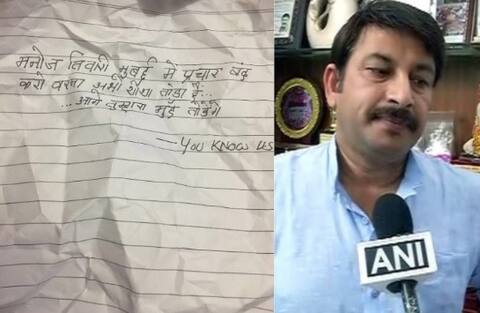 मनोज तिवारी मुबई मे प्रचार बंद
करो वरना अभी शीशा तोडा है...
...आगे तुम्हारा मुँह तोडेंगे
— YOU KNOW US
ANI